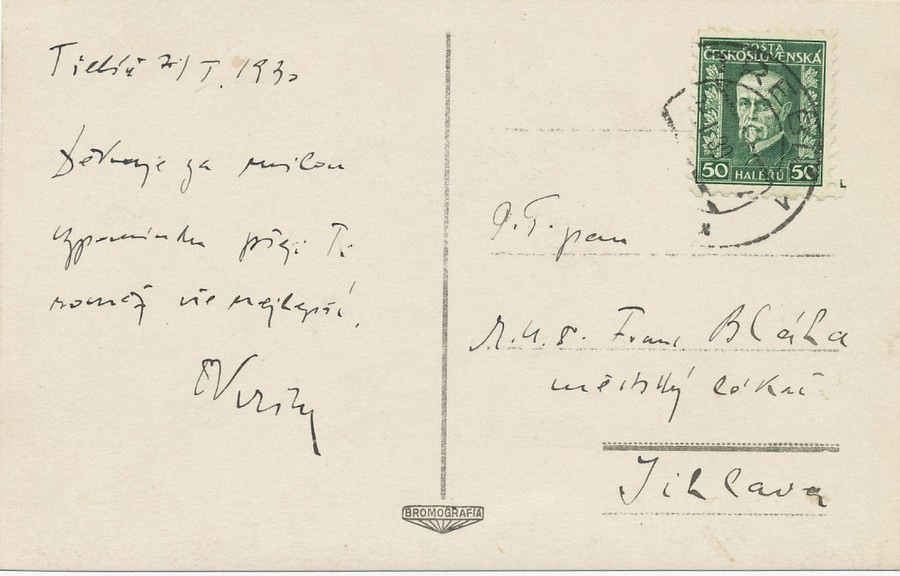 I. 1930
Děkuje za milou
vzpomínku přeji Ti
rovněž vše nejlepší.
POŠTA
ČESKOSLOVENSKÁ
50 HALÉŘŮ 50
L
P. T. pan
M.U.Dr. Franc Bláha
městský lékař
Jihlava
BROMOGRAFIA